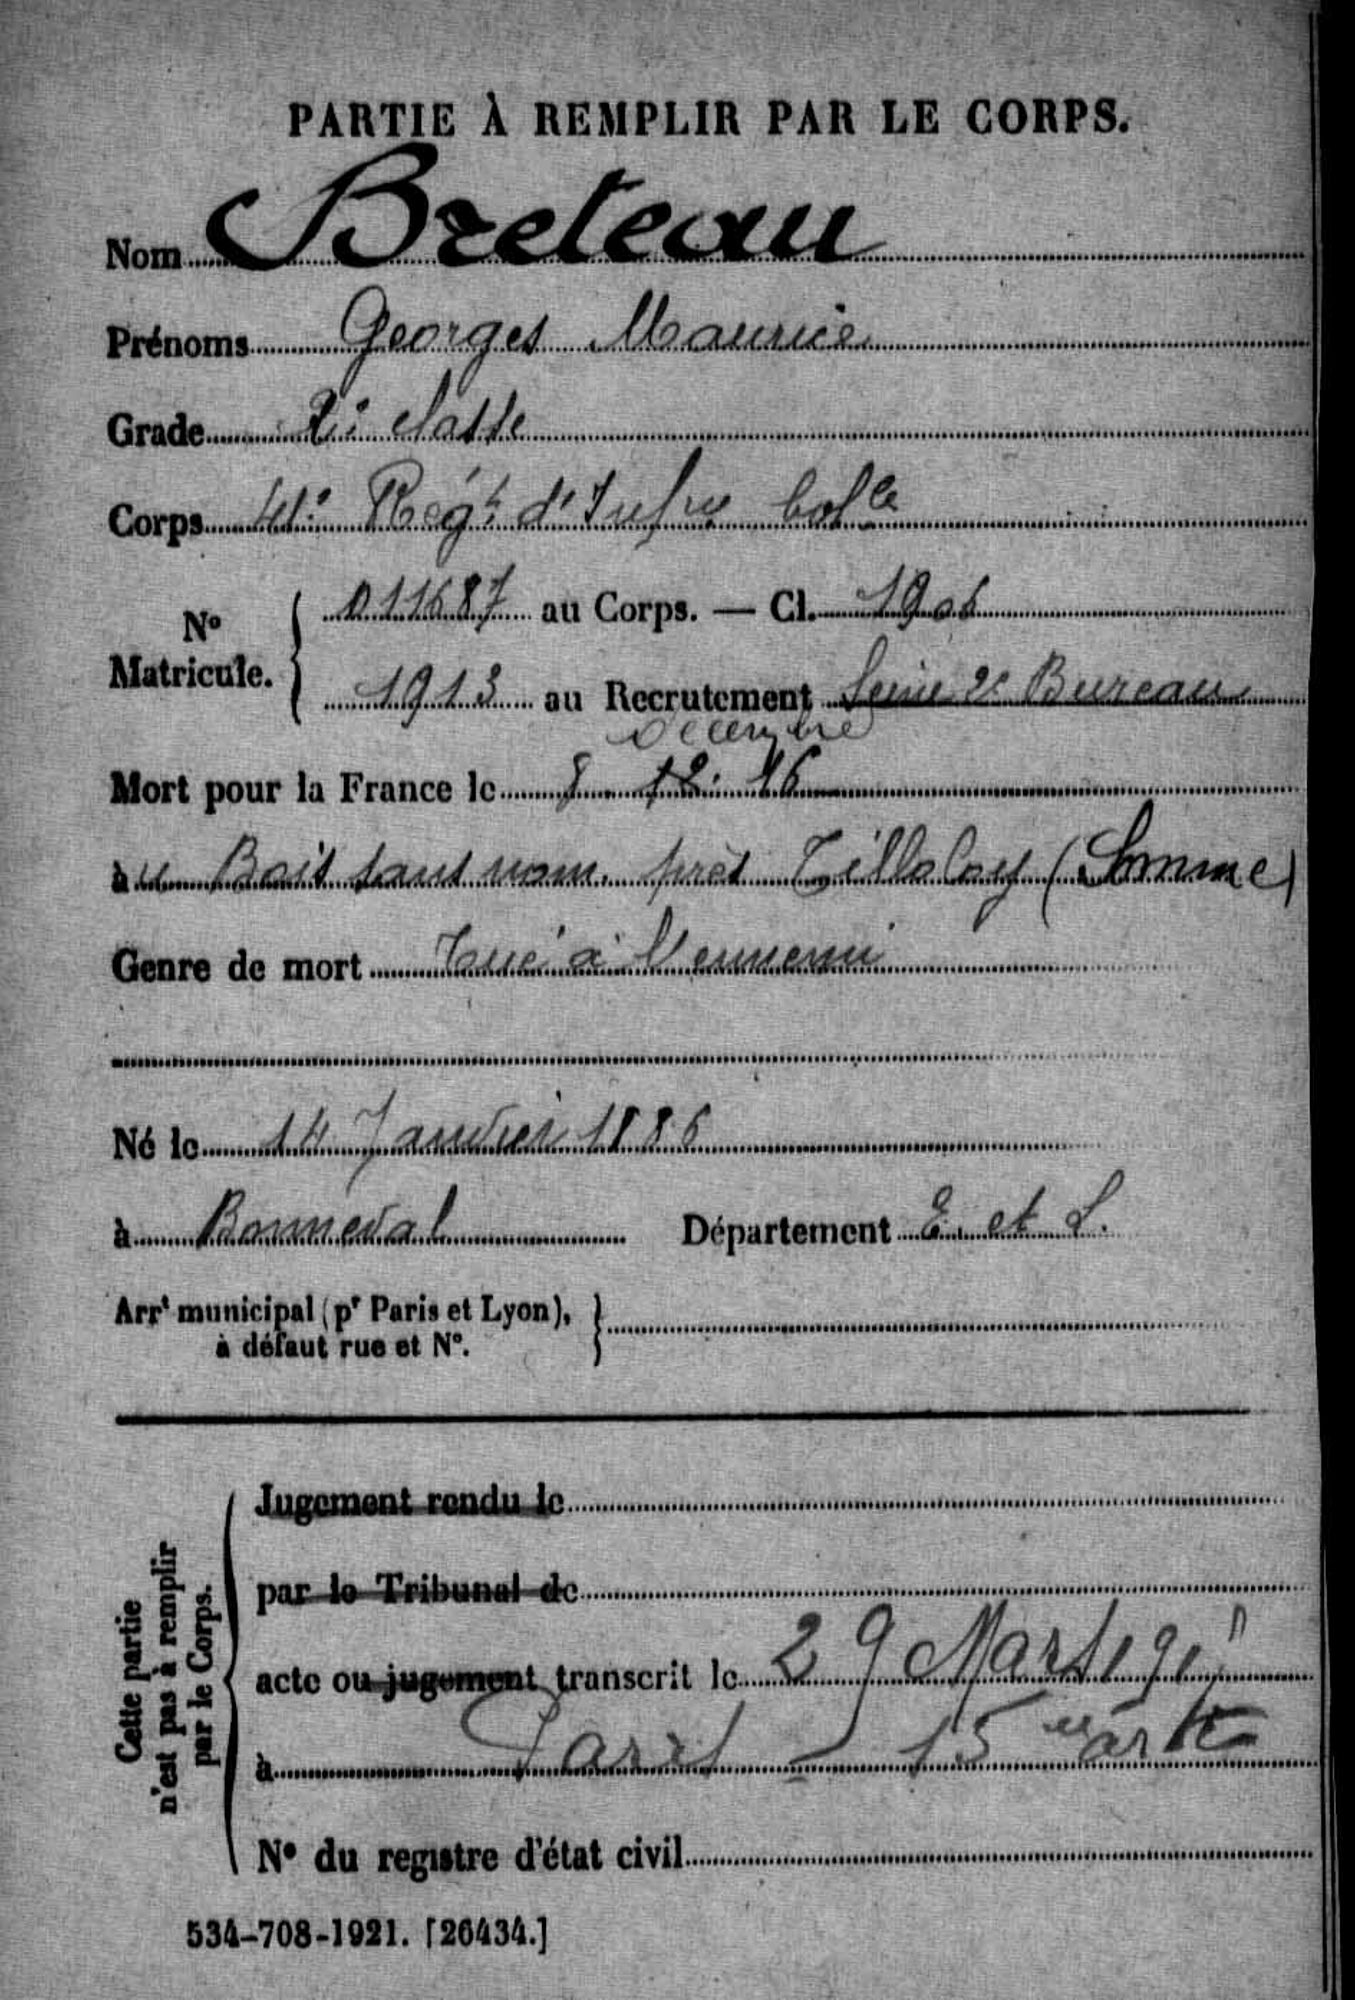 PARTIE À REMPLIR PAR LE CORPS.
Nom Breteau
Prénoms Georges Maurice
Grade 2e classe
Corps 41e Régt d'Infrie Colle
No Matricule. { 011687 au Corps. — Cl. 1906
1913 au Recrutement Seine 2e Bureau
Décembre
Mort pour la France le 8 12. 16
au Bois sans nom. près Tilloloy (Somme)
Genre de mort Tué à l'ennemi
Né le 14 Janvier 1886
à Bonneval Département E. et L.
Arrt municipal (pr Paris et Lyon), à défaut rue et No. }
Cette partie n'est pas à remplir par le Corps. {
Jugement rendu le
par le Tribunal de
acte ou jugement transcrit le 29 Mars 191
à Paris – 15e arrt
No du registre d'état civil
534-708-1921. [26434.]